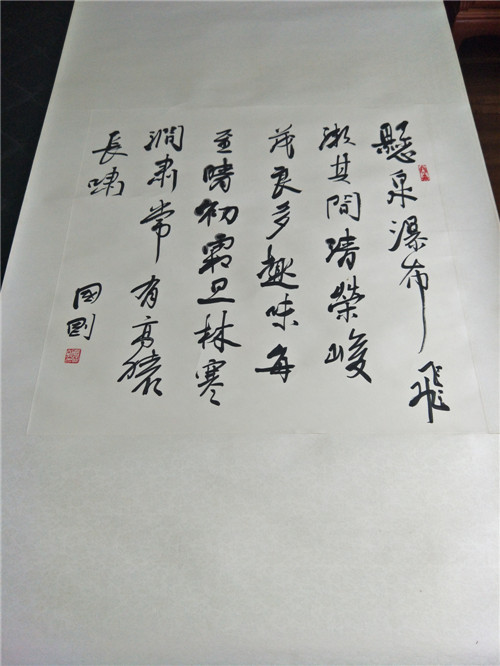 懸泉瀑布飛
漱其間清榮峻
茂良多趣味每
至晴初霜旦林寒
澗肅常有高猿
長嘯
國剛